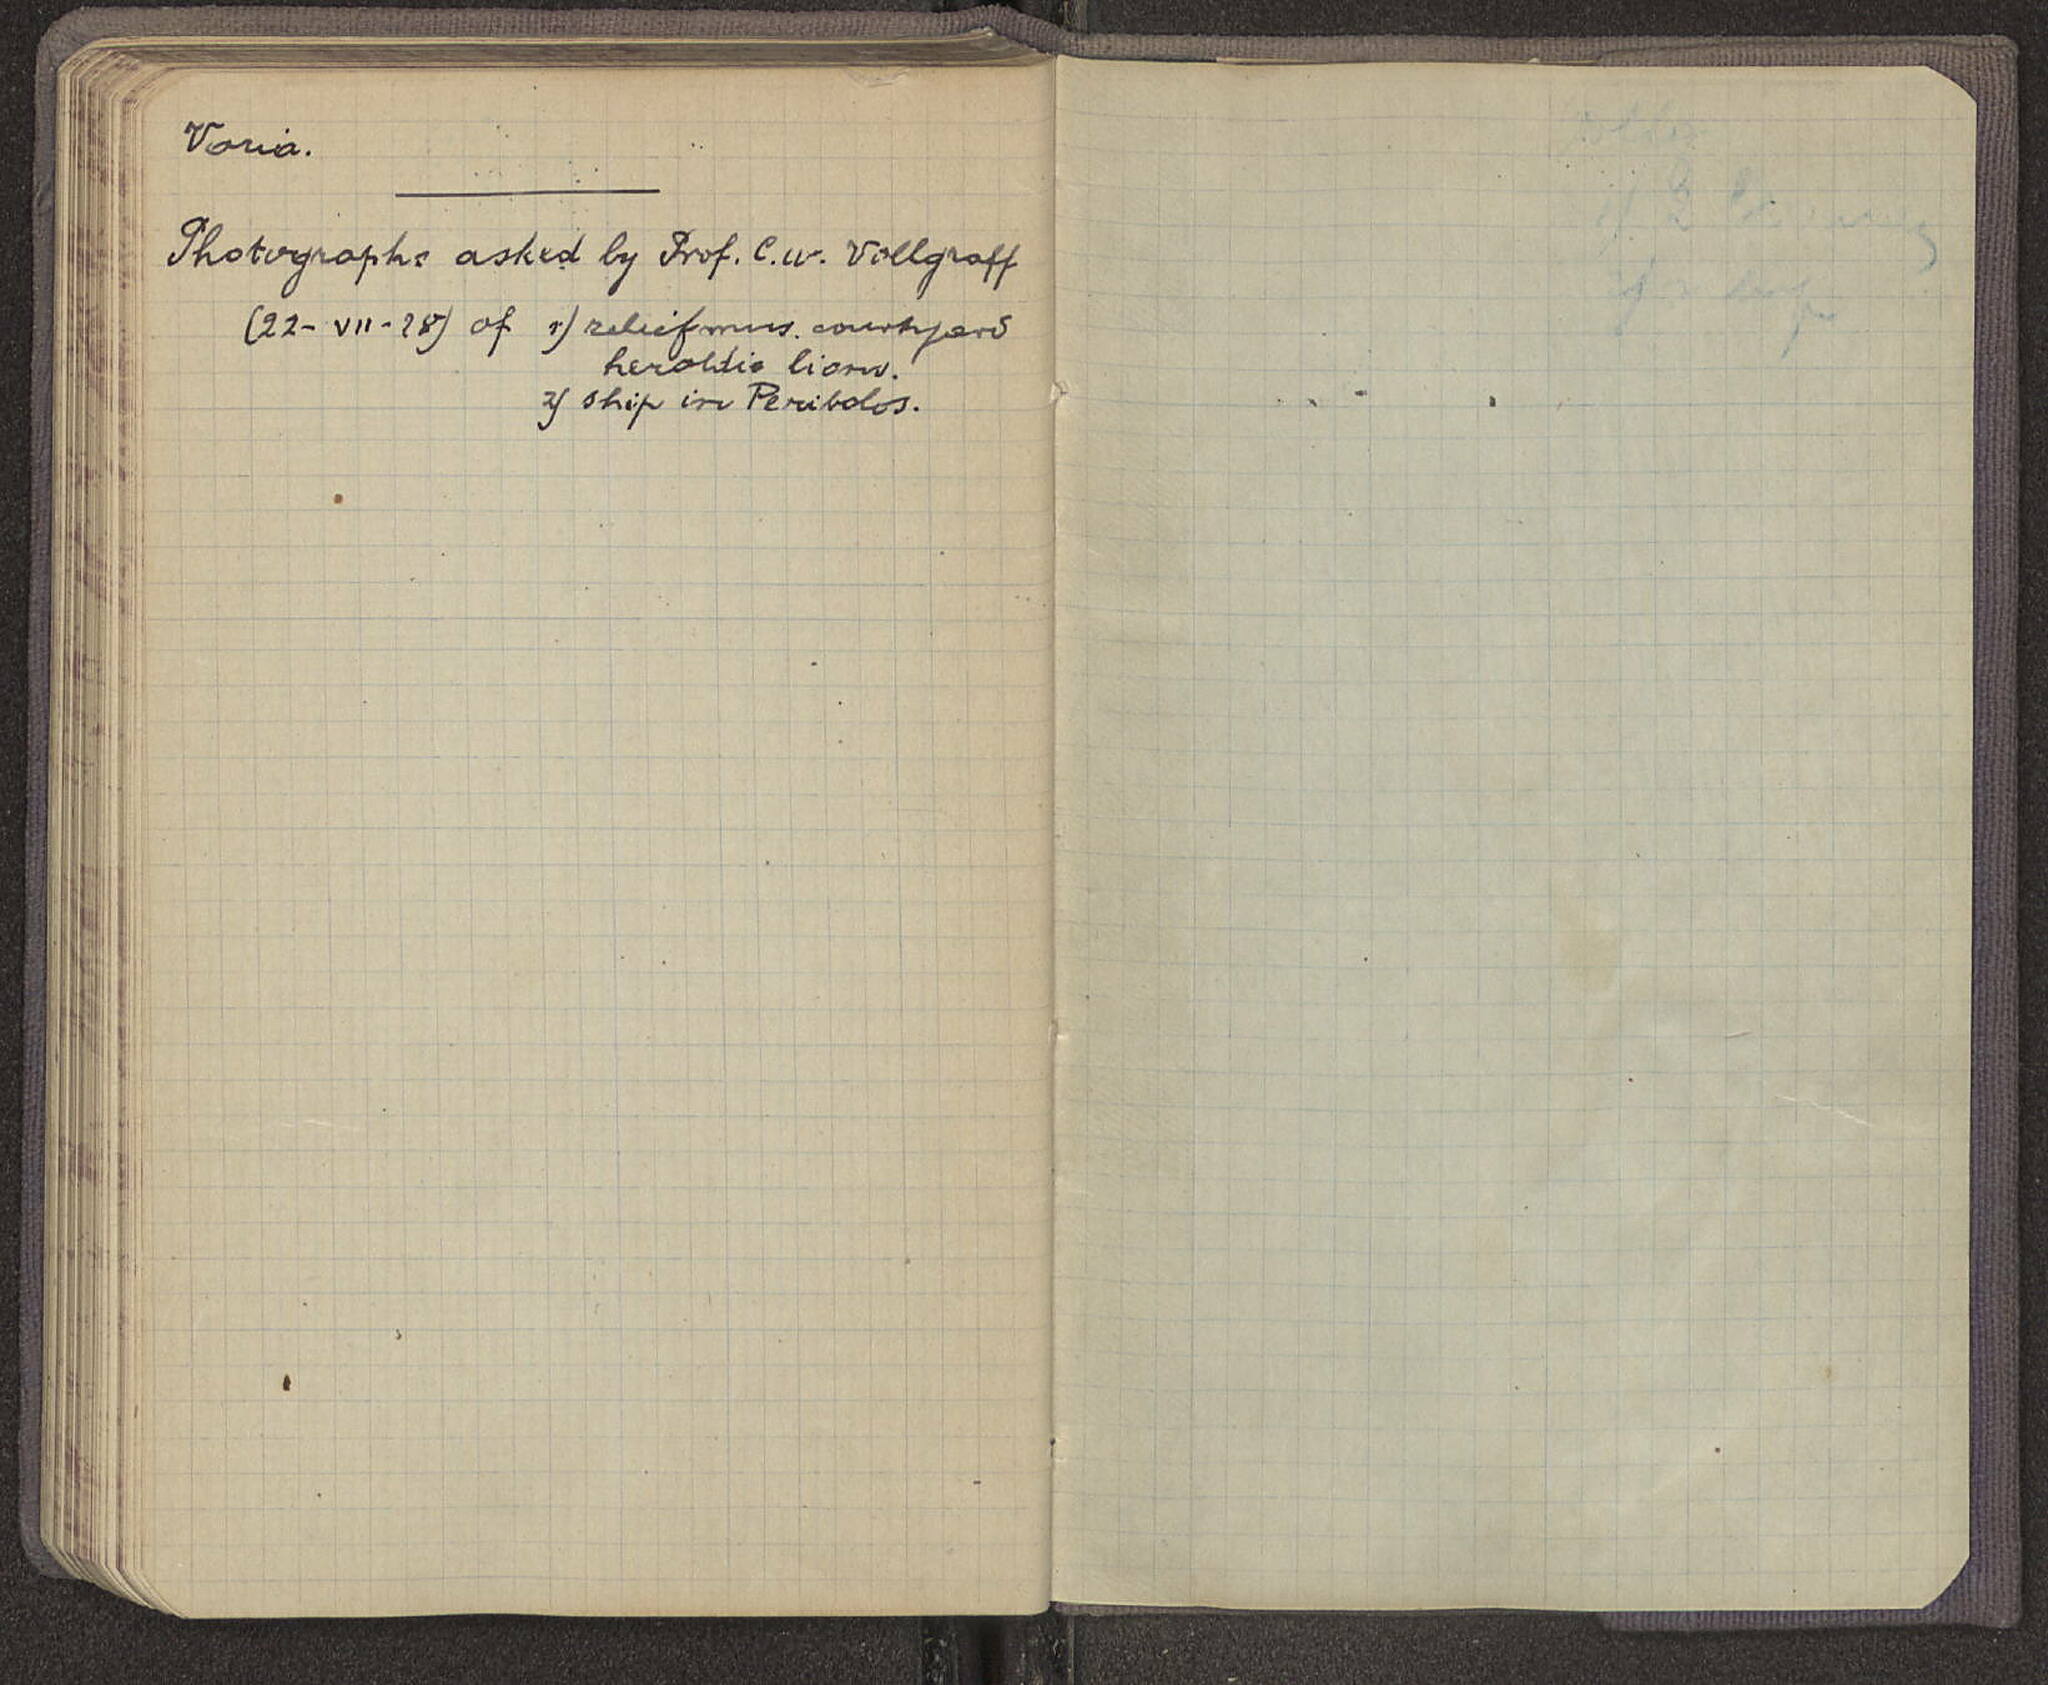 Varia.
Photographs asked by Prof. C.W. Vollgraff
(22-VII-28) of 1) relief mus. courtyard
heraldic lions.
2) ship in Peribolos.